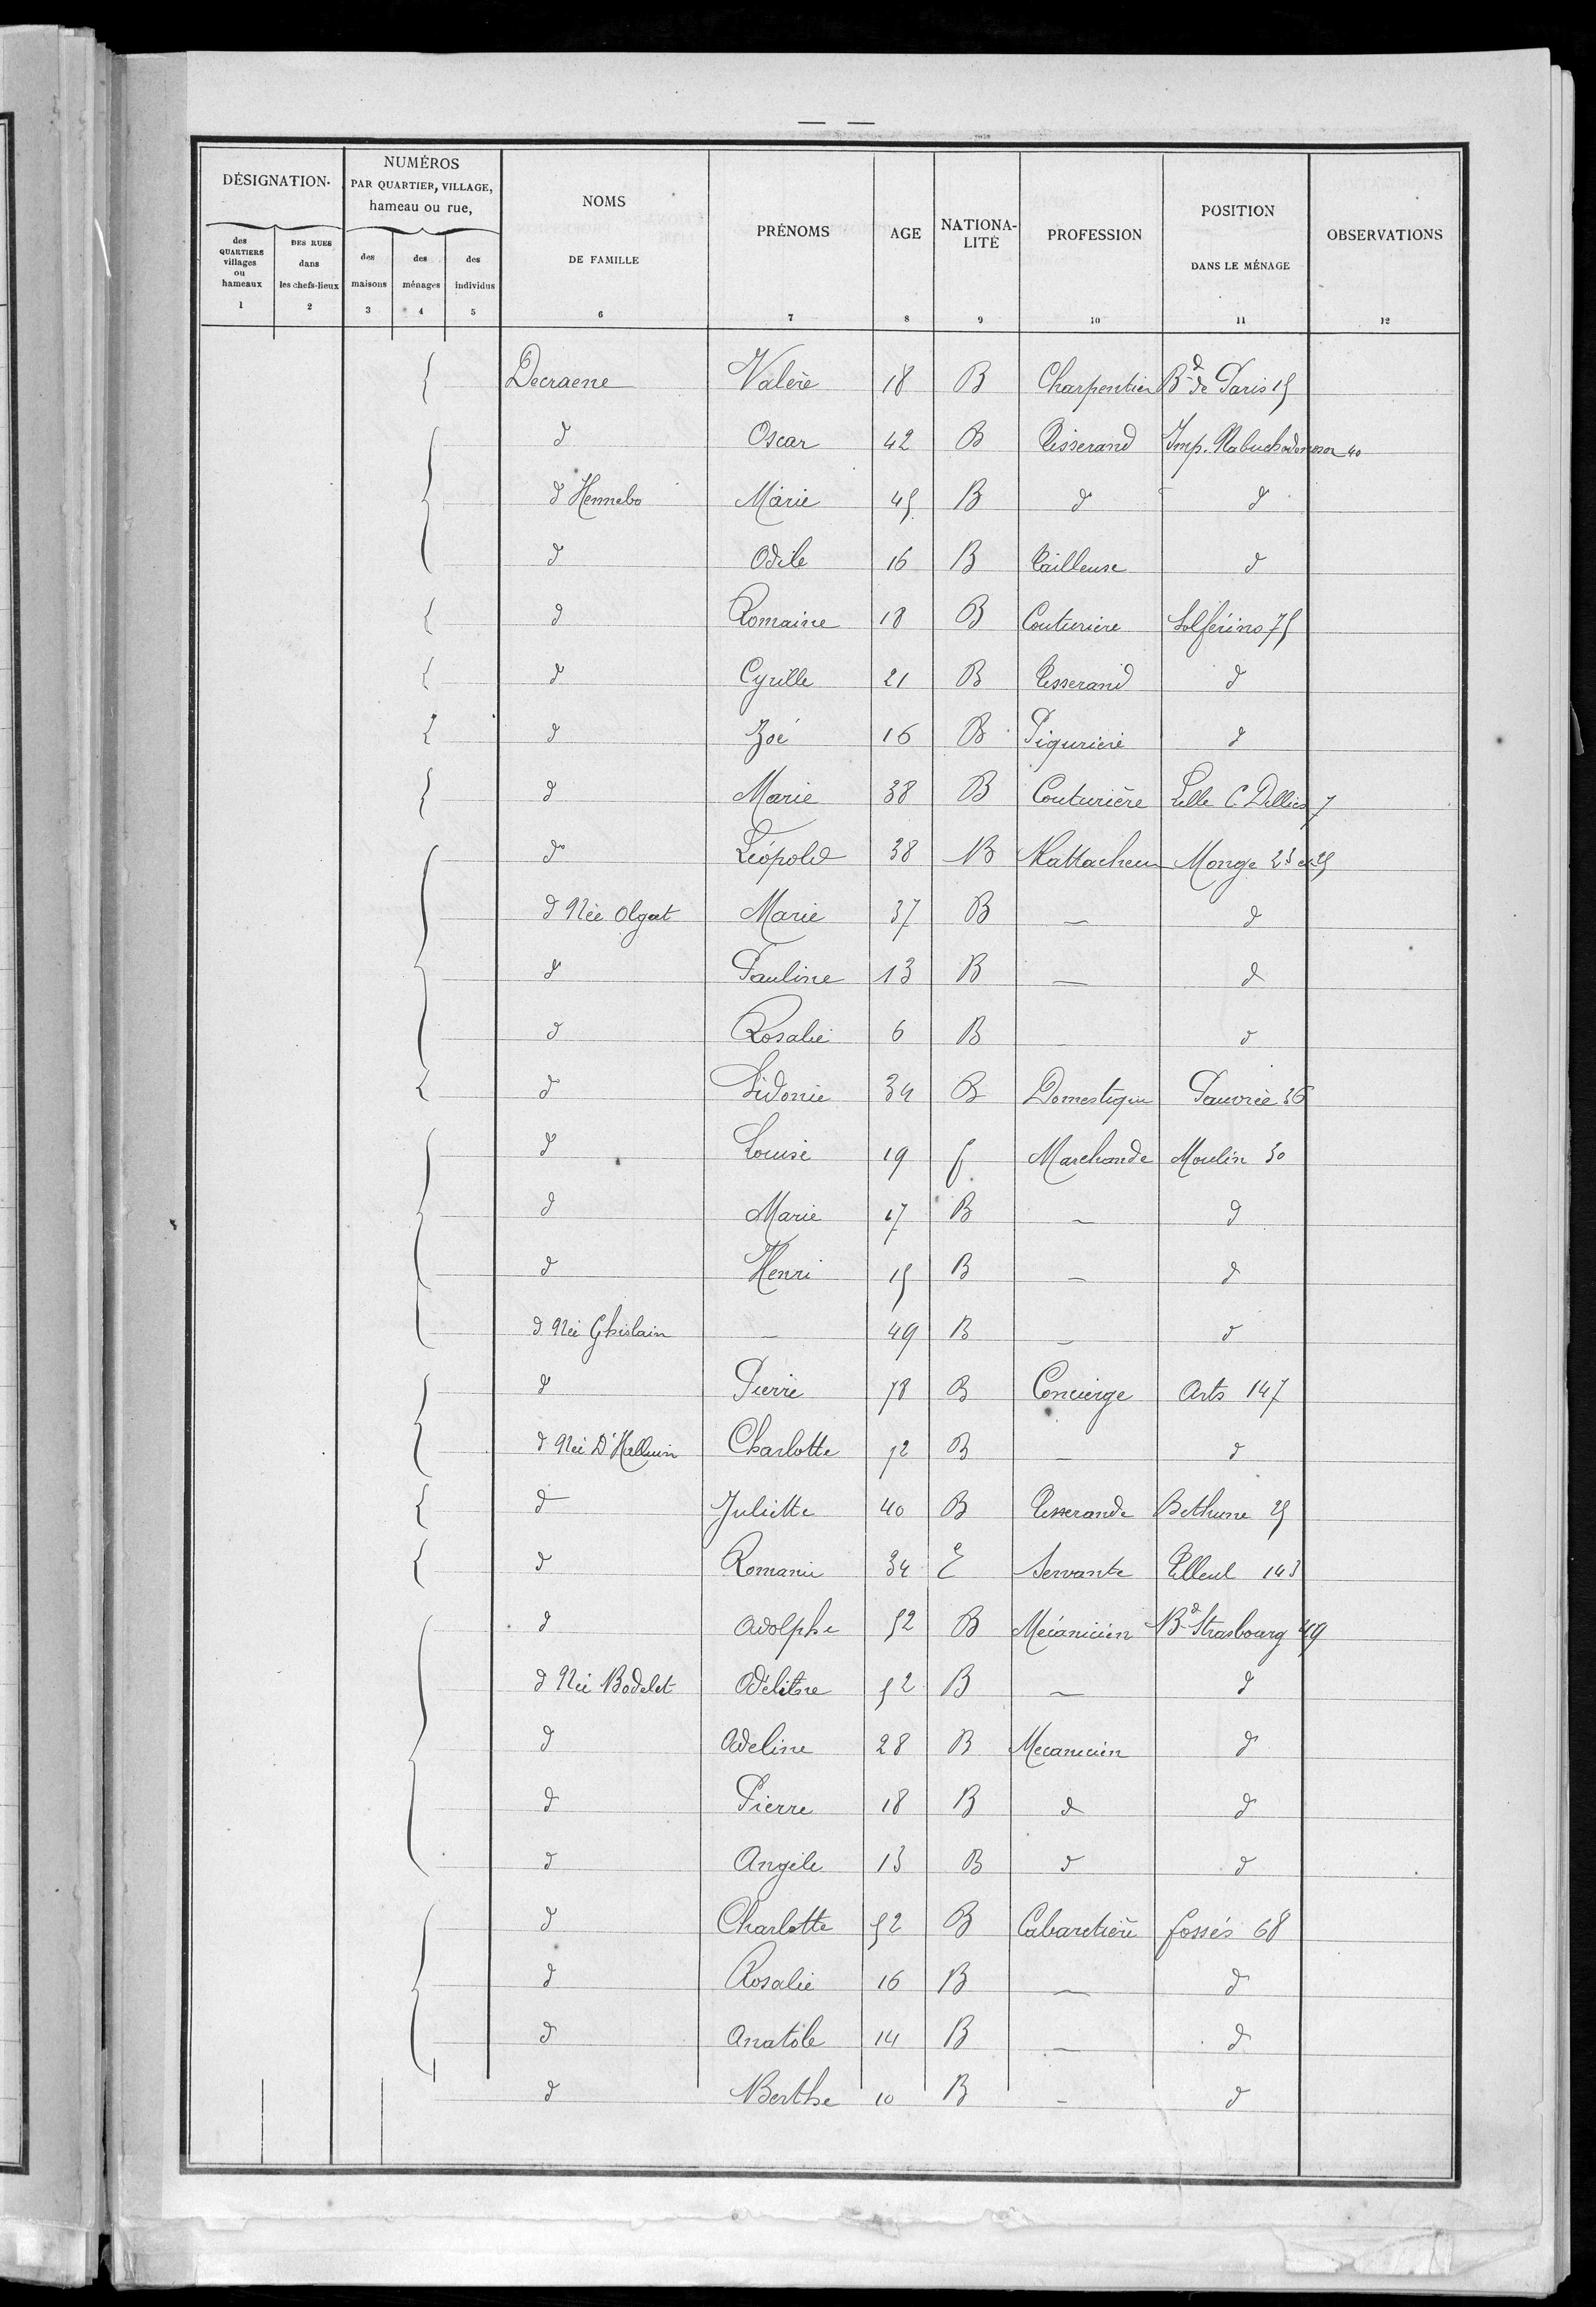 DÉSIGNATION.
NUMÉROS
PAR QUARTIER, VILLAGE,
hameau ou rue,
NOMS
DE FAMILLE
PRÉNOMS
AGE
NATIONA-
LITÉ
PROFESSION
POSITION
DANS LE MÉNAGE
OBSERVATIONS
des
QUARTIERS
villages
ou
hameaux
DES RUES
dans
les chefs-lieux
des
maisons
des
ménages
des
individus
1 2 3 4 5 6 7 8 9 10 11 12
Decraene Valère 18 B Charpentier Bd de Paris 15
d Oscar 42 B Tisserand Imp. Nabuchodonosor 40
d Hennebo Marie 45 B d d
d Odile 16 B Tailleuse d
d Romaine 18 B Couturière Solférino 75
d Cyrille 21 B Tisserand d
d Zoé 16 B Piqurière d
d Marie 38 B Couturière Lille C. Dillies 7
d Léopold 38 B Rattacheur Monge 23 et 25
d Née Olgat Marie 37 B — d
d Pauline 13 B — d
d Rosalie 6 B — d
d Sidonie 34 B Domestique Pauvrée 36
d Louise 19 f Marchande Moulin 30
d Marie 17 B — d
d Henri 15 B — d
d Née Ghislain — 49 B — d
d Pierre 78 B Concierge Arts 147
d Née D'Halluin Charlotte 52 B — d
d Juliette 40 B Tisserande Bethune 25
d Romanie 34 E Servante Tilleul 143
d Adolphe 52 B Mécanicien Bd Strasbourg 49
d Née Bodelet 52 B — d
d Adeline 28 B Mecanicien d
d Pierre 18 B d d
d Angèle 13 B d d
d Charlotte 52 B Cabaretière fossés 68
d Rosalie 16 B — d
d Anatole 14 B — d
d Berthe 10 B - d